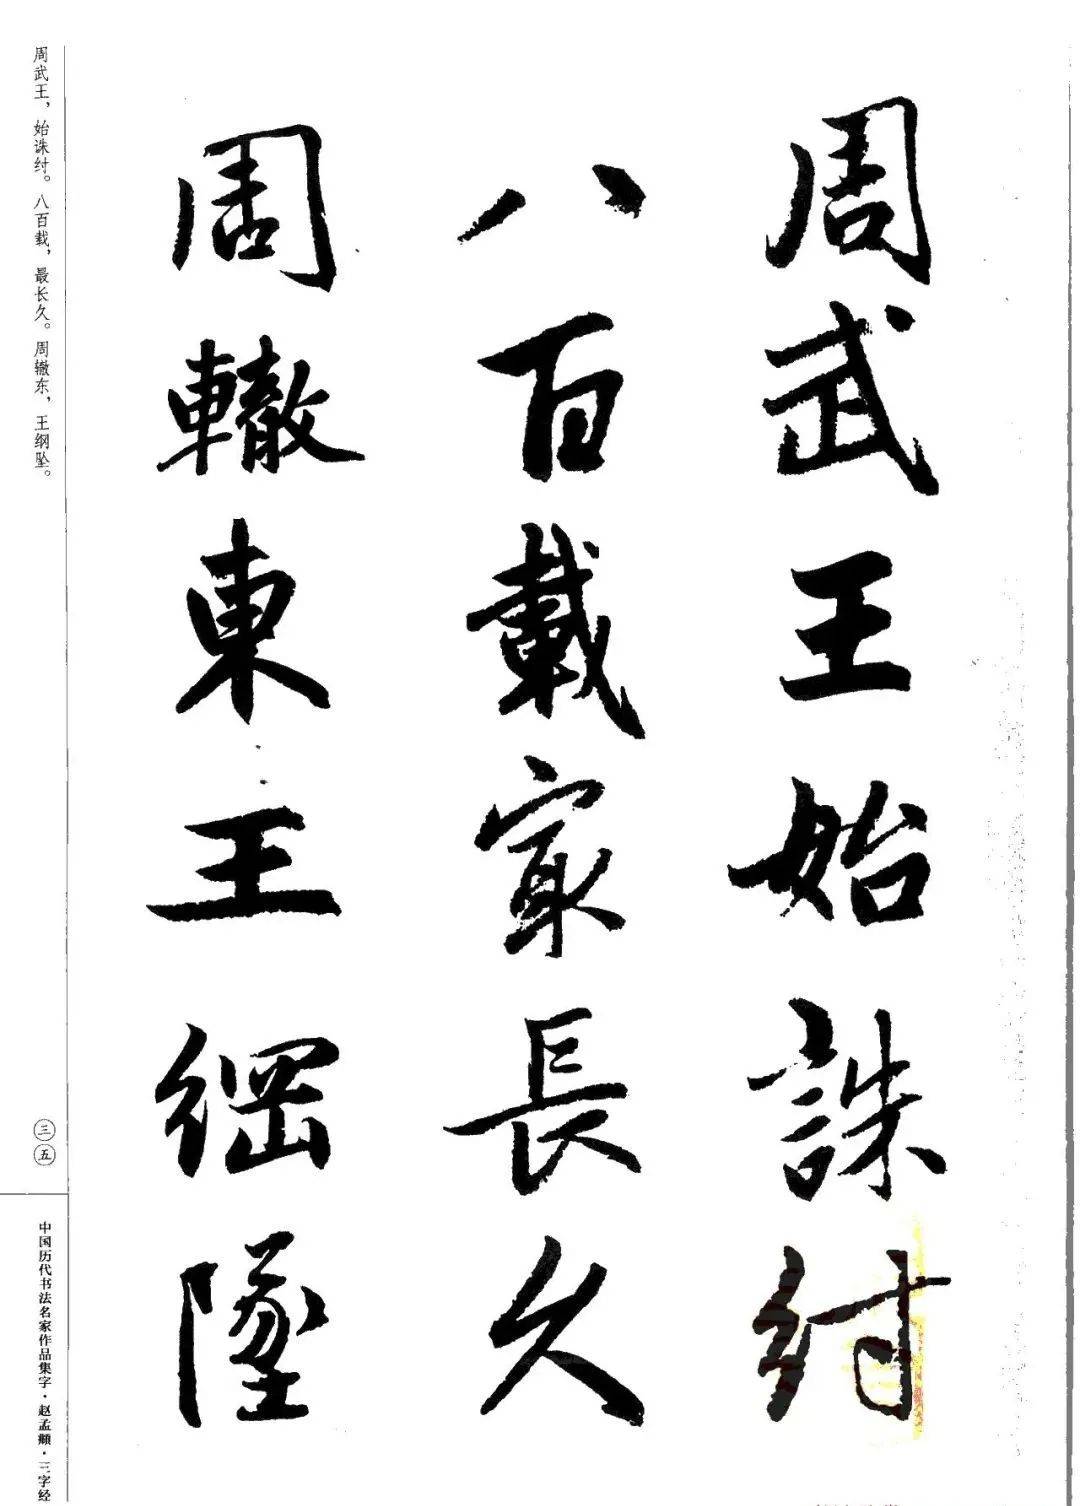 周武王始誅紂
八百載冣長久
周轍東王綱墜
周武王，始诛纣。八百载，最长久。周辙东，王纲坠。
三五
中国历代书法名家作品集字·赵孟頫·三字经